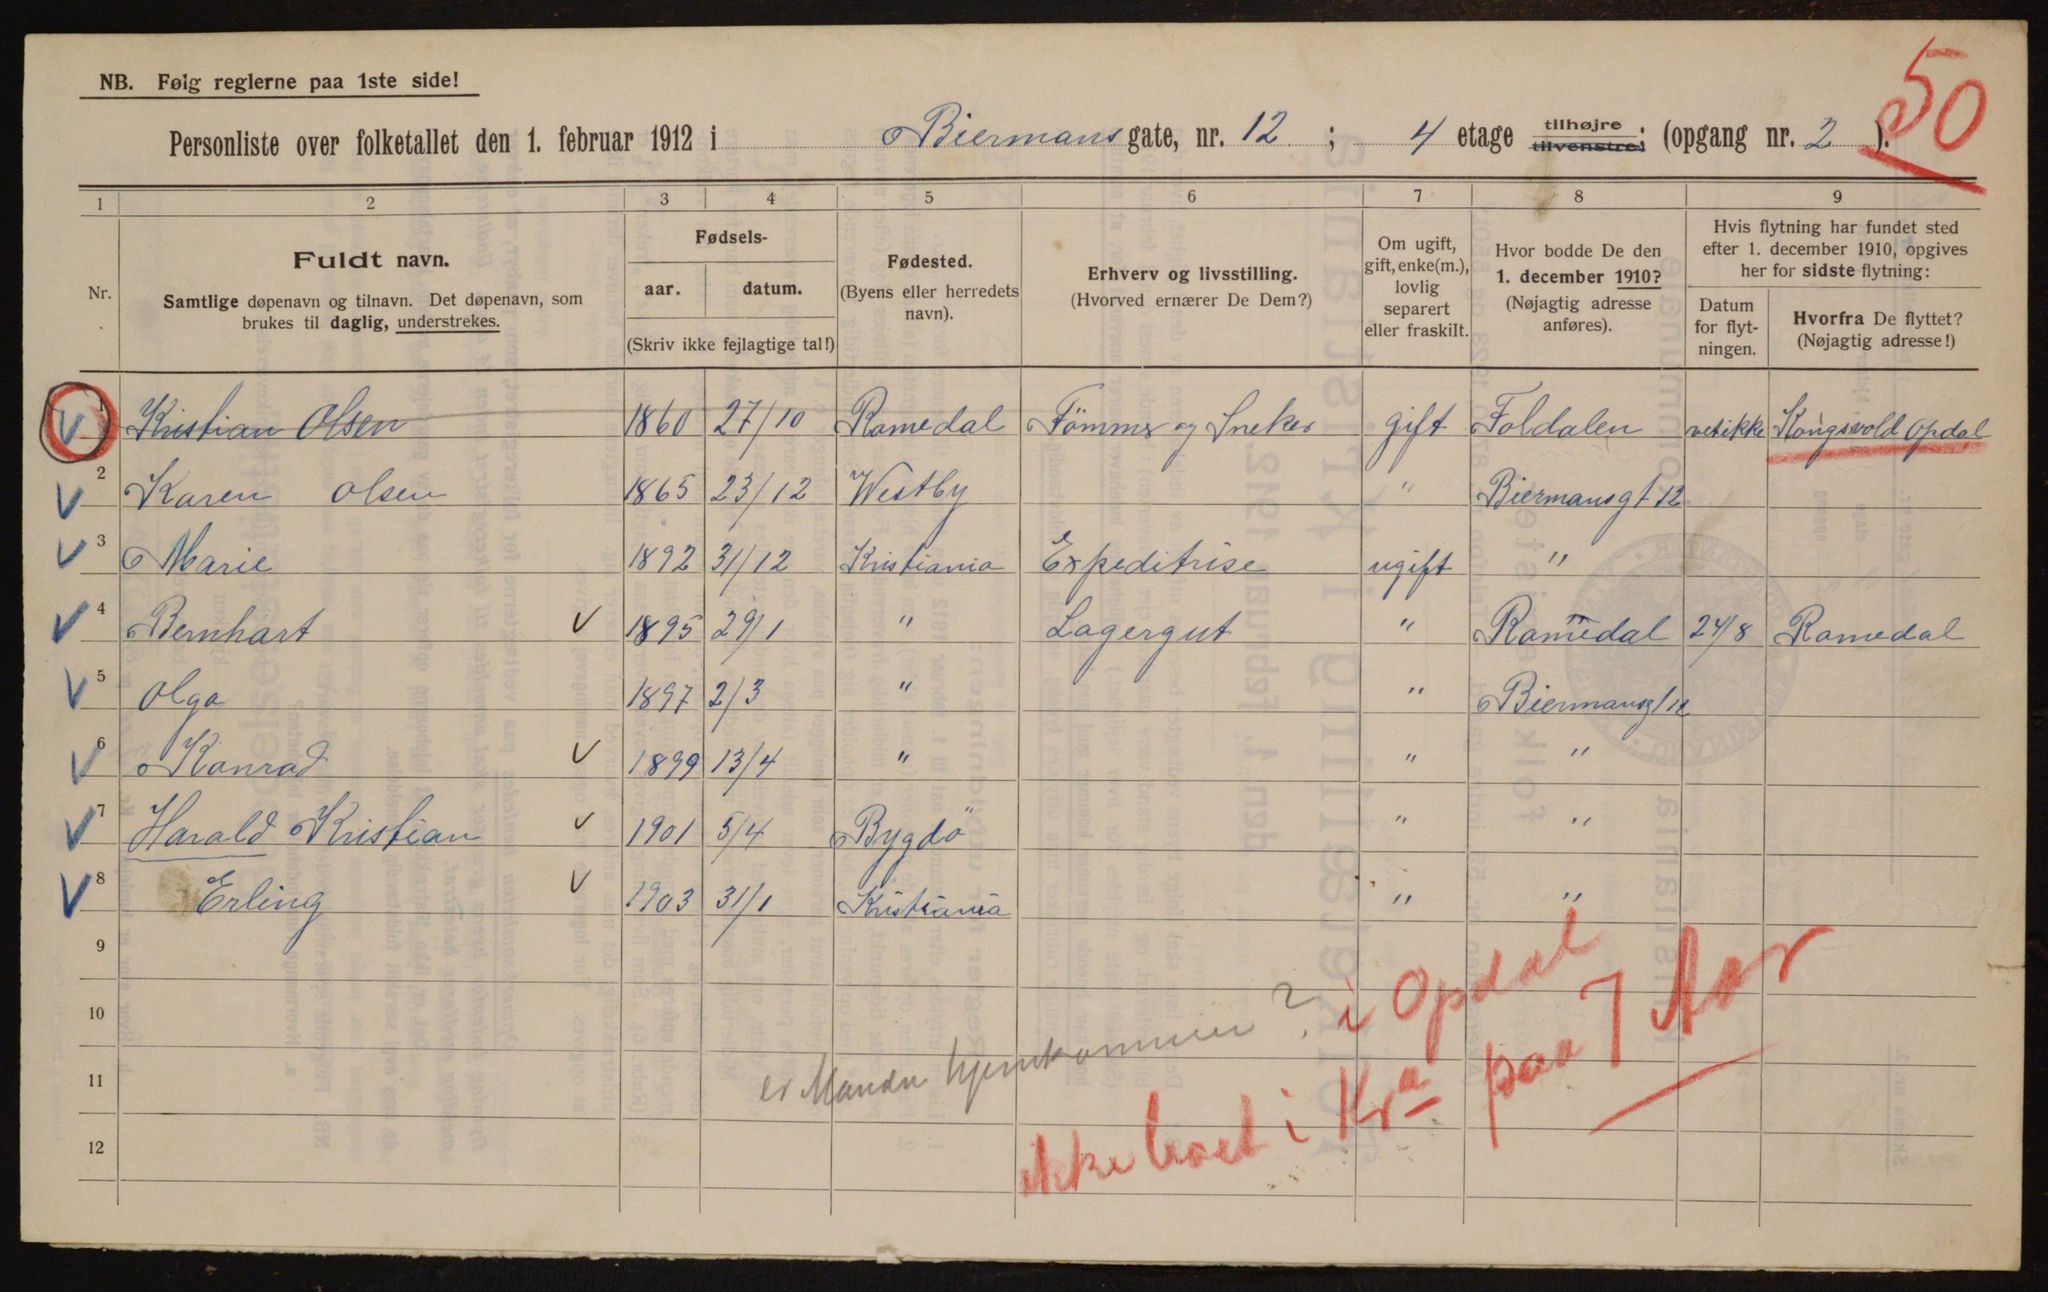 NB. Følg reglerne paa 1ste side!
50
Personliste over folketallet den 1. februar 1912 i Biermans gate, nr. 12 ; 4 etage tilhøjre tilvenstre; (opgang nr. 2 ).
1 2 3 4 5 6 7 8 9
Nr.
Fuldt navn.
Samtlige døpenavn og tilnavn. Det døpenavn, som
brukes til daglig, understrekes.
Fødsels-
aar. datum.
(Skriv ikke fejlagtige tal!)
Fødested.
(Byens eller herredets
navn).
Erhverv og livsstilling.
(Hvorved ernærer De Dem?)
Om ugift,
gift, enke(m.),
lovlig
separert
eller fraskilt.
Hvor bodde De den
1. december 1910?
(Nøjagtig adresse
anføres).
Hvis flytning har fundet sted
efter 1. december 1910, opgives
her for sidste flytning:
Datum
for flyt-
ningen.
Hvorfra De flyttet?
(Nøjagtig adresse!)
1 Kristian Olsen 1860 27/10 Romedal Tömmr og Sneker gift Foldalen vet ikke Kongsvold Opdal
2 Karen Olsen 1865 23/12 Westby " Biermansgt 12
3 Marie 1892 31/12 Kristiania Expeditrise ugift "
4 Bernhart v 1895 29/1 " Lagergut " Romedal 24/8 Romedal
5 Olga 1897 2/3 " " Biermansg/12
6 Konrad v 1899 13/4 " " "
7 Harald Kristian v 1901 5/4 Bygdö " "
8 Erling v 1903 31/1 Kristiania " "
9
10
11
12
er Manden hjemkommen?
i Opdal
ikke boet i Kra paa 7 Aar